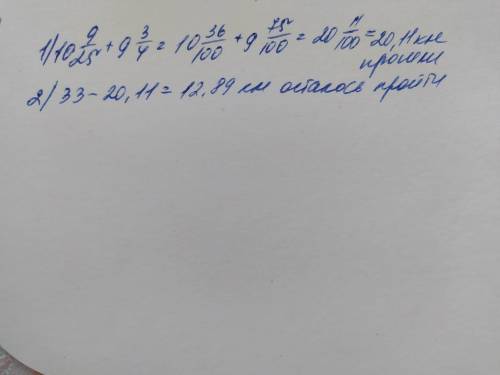 1) 10 9/25 + 9 3/4 = 10 36/100 + 9 75/100 = 20 11/100 = 20,11 км
прошли
2) 33 - 20,11 = 12,89 км осталось пройти